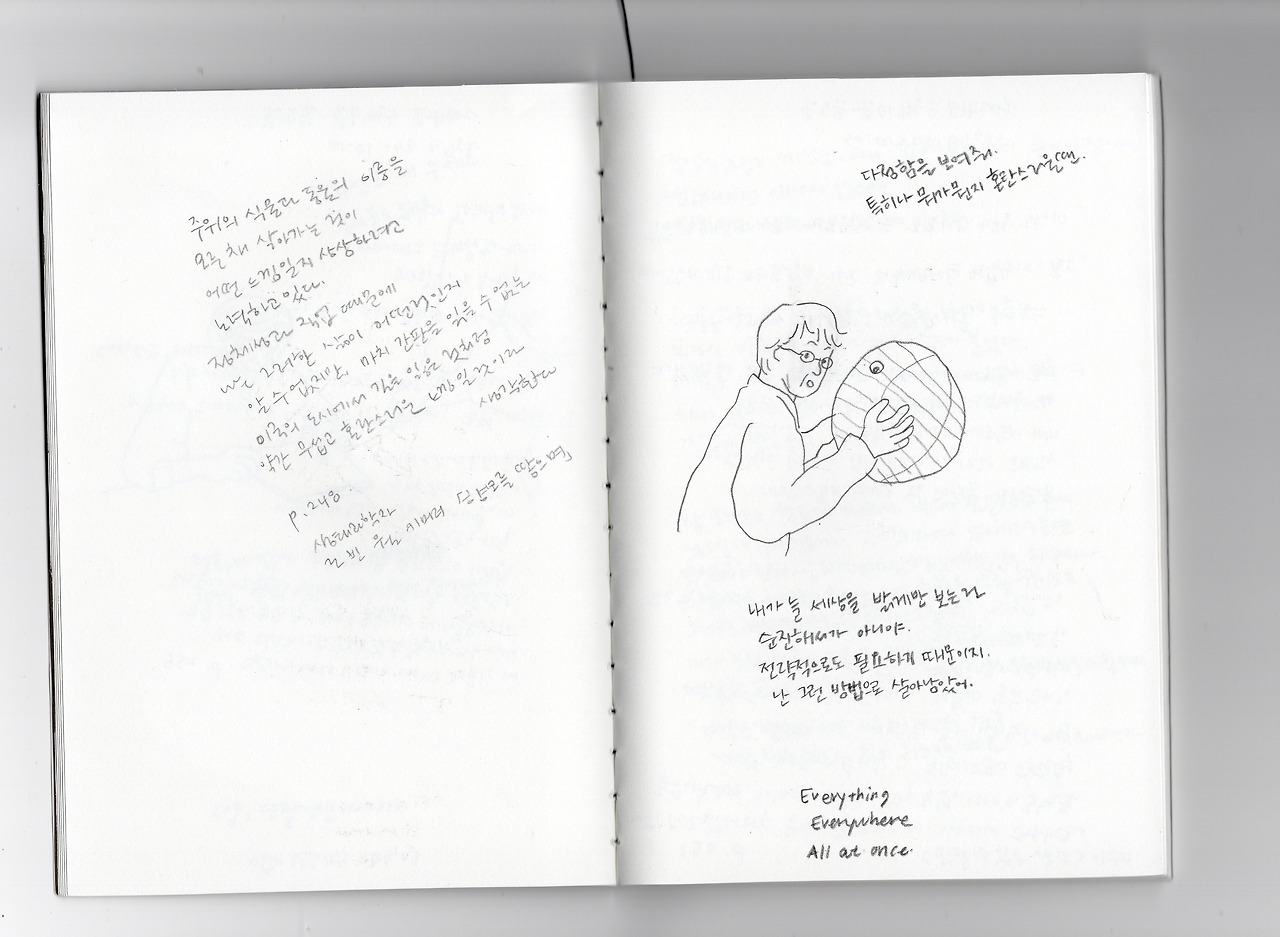 주위의 식물과 동물의 이름을
모른 채 살아가는 것이
어떤 느낌일지 상상하려고
노력하고 있다.
정체성과 직업 때문에
나는 그러한 삶이 어떤것인지
알 수 없지만, 마치 간판을 읽을 수 없는
이국의 도시에서 길을 잃은 것처럼
약간 무섭고 혼란스러운 느낌일 것이라
생각한다
p.248
생태과학자
로빈 월 키머러 땋으며
다정함을 보여줘.
특히나 뭐가뭔지 혼란스러울땐.
내가 늘 세상을 밝게만 보는건
순진해서가 아니야.
전략적으로도 필요하기 때문이지.
난 그런 방법으로 살아남았어.
Everything
Everywhere
All at once.